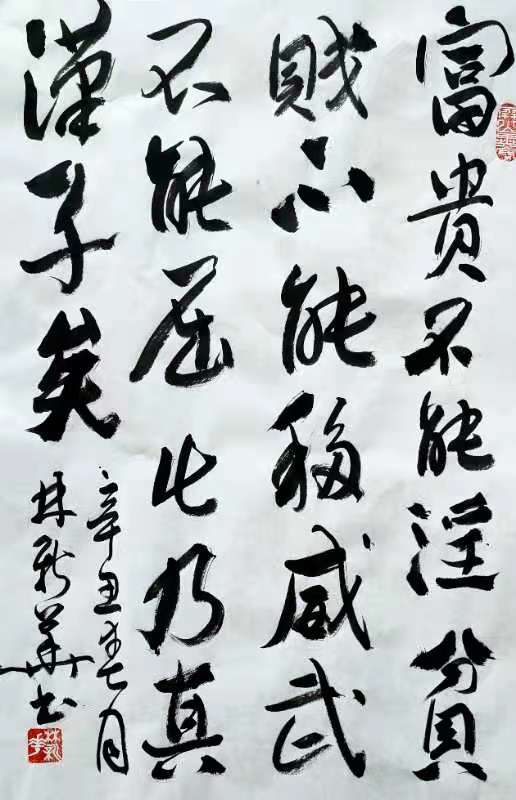 富贵不能淫贫
贱不能移威武
不能屈此乃真
汉子矣
辛丑年七月
林新华书